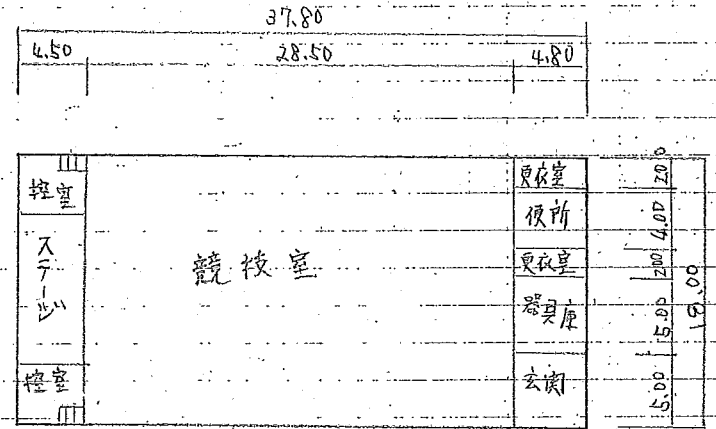 37.80
4.50 28.50 4.80
控室
ステージ
控室
競技室
更衣室
便所
更衣室
器具庫
玄関
2.00
4.00
2.00
5.00
5.00
18.00